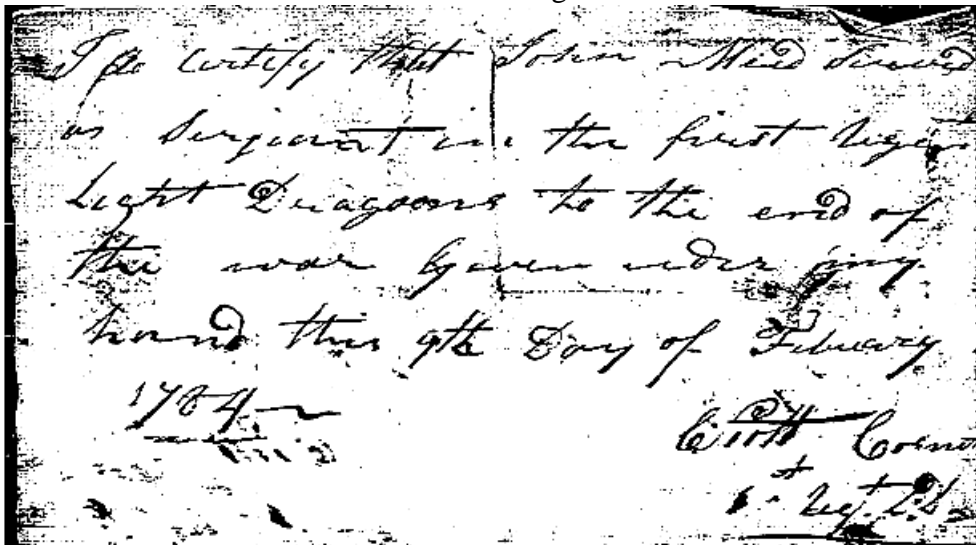 I do certify that John Mead Served
as Serjeant in the first Regt
Light Dragoons to the end of
the war Given under my
hand this 9th Day of Febuary
1784
Cornt
1st Regt. L.D